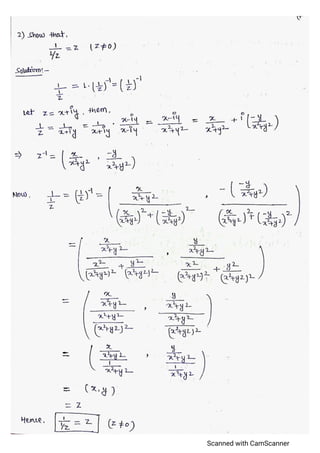 2) Show that.
1/(1/z) = z (z≠0)
Solution:-
1/(1/z) = 1.(1/z)^-1 = (1/z)^-1
Let z = x+iy, then.
1/z = 1/(x+iy) = 1/(x+iy) . (x-iy)/(x-iy) = (x-iy)/(x²+y²) = x/(x²+y²) + i(-y/(x²+y²))
⇒ z^-1 = (x/(x²+y²) , -y/(x²+y²))
Now, 1/(1/z) = (1/z)^-1 = ( (x/(x²+y²)) / ((x/(x²+y²))² + (-y/(x²+y²))²) , -(-y/(x²+y²)) / ((x/(x²+y²))² + (-y/(x²+y²))²) )
= ( (x/(x²+y²)) / (x²/(x²+y²)² + y²/(x²+y²)²) , (y/(x²+y²)) / (x²/(x²+y²)² + y²/(x²+y²)²) )
= ( (x/(x²+y²)) / ((x²+y²)/(x²+y²)²) , (y/(x²+y²)) / ((x²+y²)/(x²+y²)²) )
= ( (x/(x²+y²)) / (1/(x²+y²)) , (y/(x²+y²)) / (1/(x²+y²)) )
= (x, y)
= z
Hence, 1/(1/z) = z (z≠0)
Scanned with CamScanner